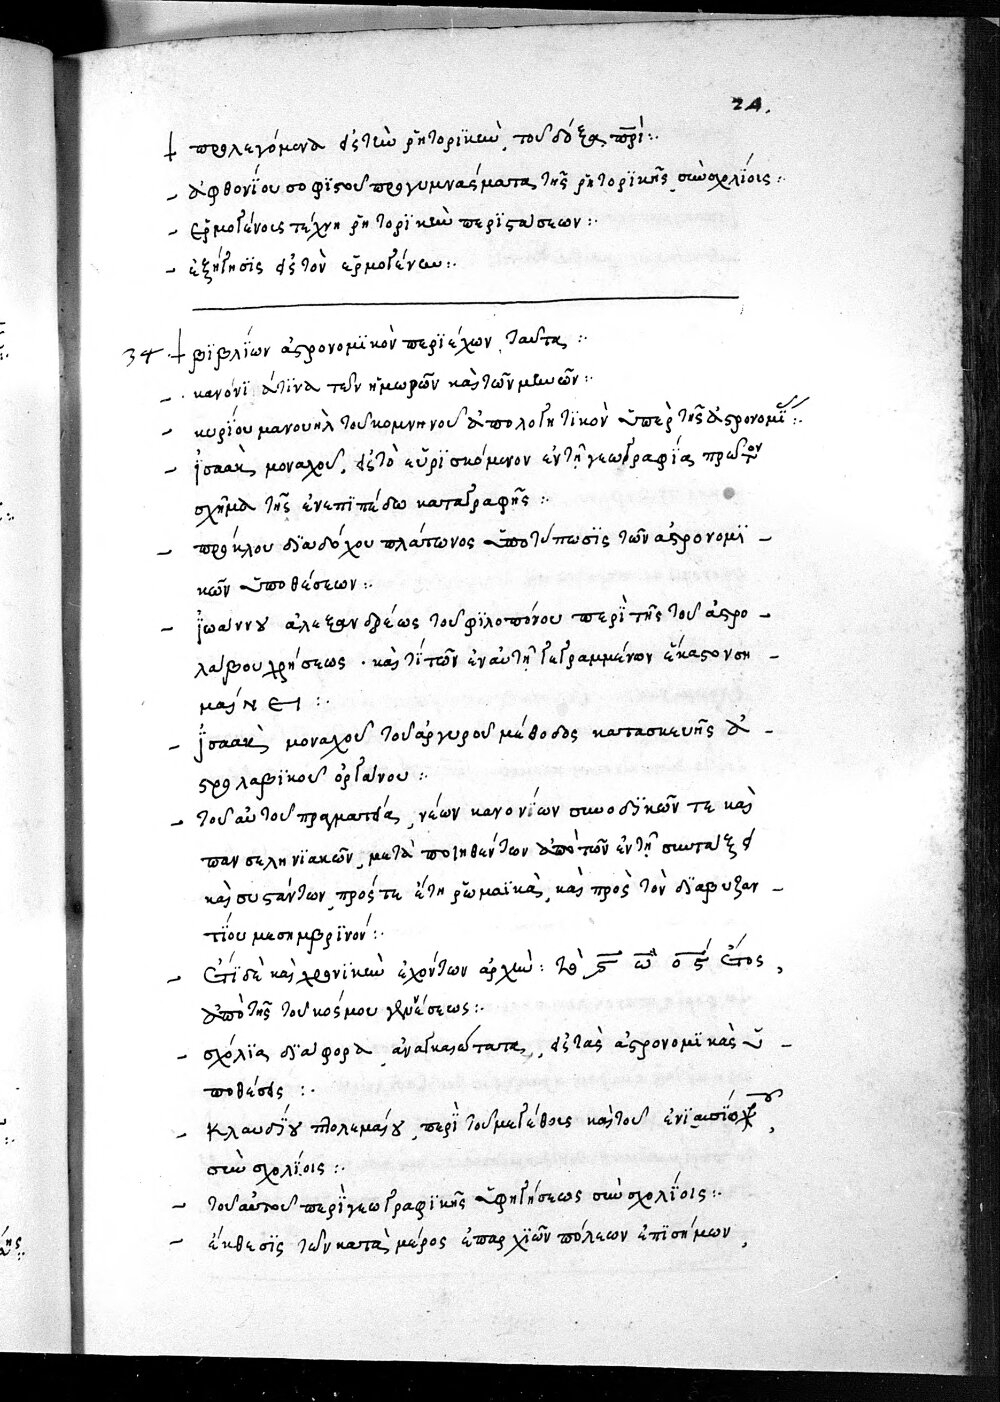 24.
† προλεγόμενα εἰς τὴν ῥητορϊκὴν, τοῦ δόξα πατρί :.
- ἀφθονΐου σοφϊστοῦ προγυμνάσματα τῆς ῥητορϊκῆς, σὺν σχολΐοις :.
- ἑρμογένοις τέχνη ῥητορϊκὴ περϊστάσεων :.
- ἐξήγησϊς εἰς τὸν ἑρμογένην :.
34 . † βϊβλΐων ἀστρονομϊκὸν περϊέχων, ταῦτα :.
- . κανόνϊ ἅτϊνα τῶν ἡμερῶν καὶ τῶν μηνῶν :.
- κυρΐου μανουὴλ τοῦ κομνηνοῦ ἀπολογητϊκὸν ὑπὲρ τῆς ἀστρονομΐας :.
- ἰσαὰκ μοναχοῦ, εἰς τὸ εὑρϊσκόμενον ἐν τῇ γεωγραφΐα πρῶτον
σχῆμα τῆς ἐν ἐπϊπέδω καταγραφῆς :.
- πρόκλου δϊαδόχου πλάτωνος ὑποτύπωσϊς τῶν ἀστρονομϊ -
κῶν ὑποθέσεων :.
- ἰωάννου ἀλεξανδρέως τοῦ φϊλοπόνου περὶ τῆς τοῦ ἀστρο -
λάβου χρήσεως . καὶ τί τῶν ἐν αὐτῇ γεγραμμένων ἕκαστον ση -
μαίνει :.
- ἰσαὰκ μοναχοῦ τοῦ ἀργυροῦ μέθοδος κατασκευῆς ἀ -
στρολαβϊκοῦ ὀργάνου :.
- τοῦ αὐτοῦ πραγματεία, νέων κανονΐων συνοδϊκῶν τε καὶ
πανσεληνϊακῶν, μεταποιηθέντων ἀπὸ τῶν ἐν τῇ συντάξει
καὶ συστάντων, πρός τε ἔτη ῥωμαϊκὰ, καὶ πρὸς τὸν δϊὰ βυζαν -
τΐου μεσημβρϊνόν :.
- ἔτϊ δὲ καὶ χρονϊκὴν ἐχόντων ἀρχὴν : τὸ ͵ς ω ο ς ἔτος,
ἀπὸ τῆς τοῦ κόσμου γενέσεως :.
- σχόλϊα δϊάφορα, ἀναγκαιότατα, εἰς τὰς ἀστρονομϊκὰς ὑ -
ποθέσεις :.
- κλαυδΐου πτολεμαίου, περὶ τοῦ μεγέθοις καὶ τοῦ ἐνϊαυσΐου,
σὺν σχολΐοις :.
- τοῦ αὐτοῦ περὶ γεωγραφϊκῆς ὑφηγήσεως σὺν σχολΐοις :.
- ἔκθεσϊς τῶν κατὰ μέρος ἐπαρχϊῶν πόλεων ἐπϊσήμων,